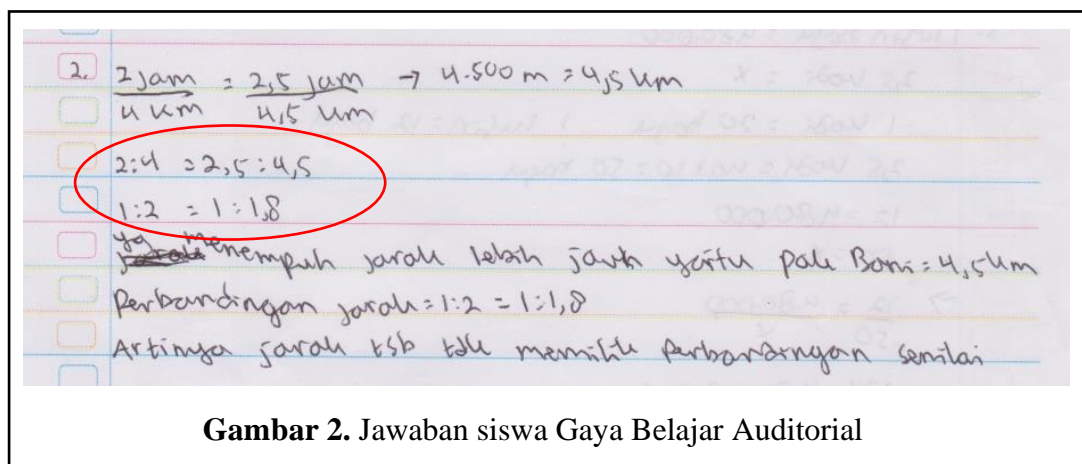 2. 2 jam = 2,5 jam → 4.500 m = 4,5 km
4 km 4,5 km
2:4 = 2,5 : 4,5
1:2 = 1 : 1,8
yg menempuh jarak lebih jauh yaitu pak Boni = 4,5 km
Perbandingan jarak = 1:2 = 1:1,8
Artinya jarak tsb tdk memiliki perbandingan senilai
Gambar 2. Jawaban siswa Gaya Belajar Auditorial